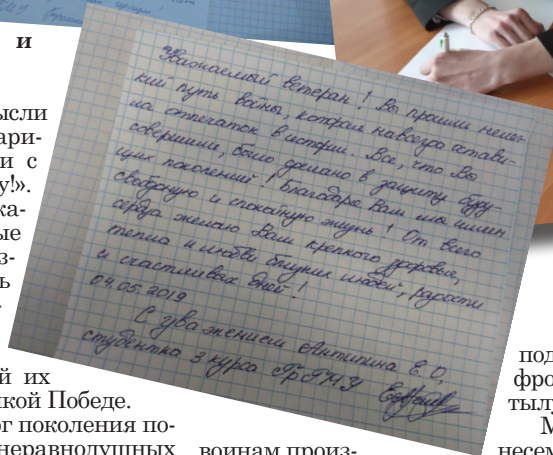 и
ысли
ари-
и с
у!».
ка-
ые
з-
ь
й их
кой Победе.
ог поколения по-
неравнодушных
воинам произ-
под
фро
тылу
М
несем
Уважаемый ветеран! Вы прошли нелег-
кий путь войны, которая навсегда остави-
ла отпечаток в истории. Все, что Вы
совершили, было сделано в защиту буду-
щих поколений! Благодаря Вам мы имеем
свободную и спокойную жизнь! От всего
сердца желаю Вам крепкого здоровья,
тепла и любви близких людей, радости
и счастливых дней!
04.05.2019
С уважением Антипина Е.О,
студентка 3 курса ГрГМУ